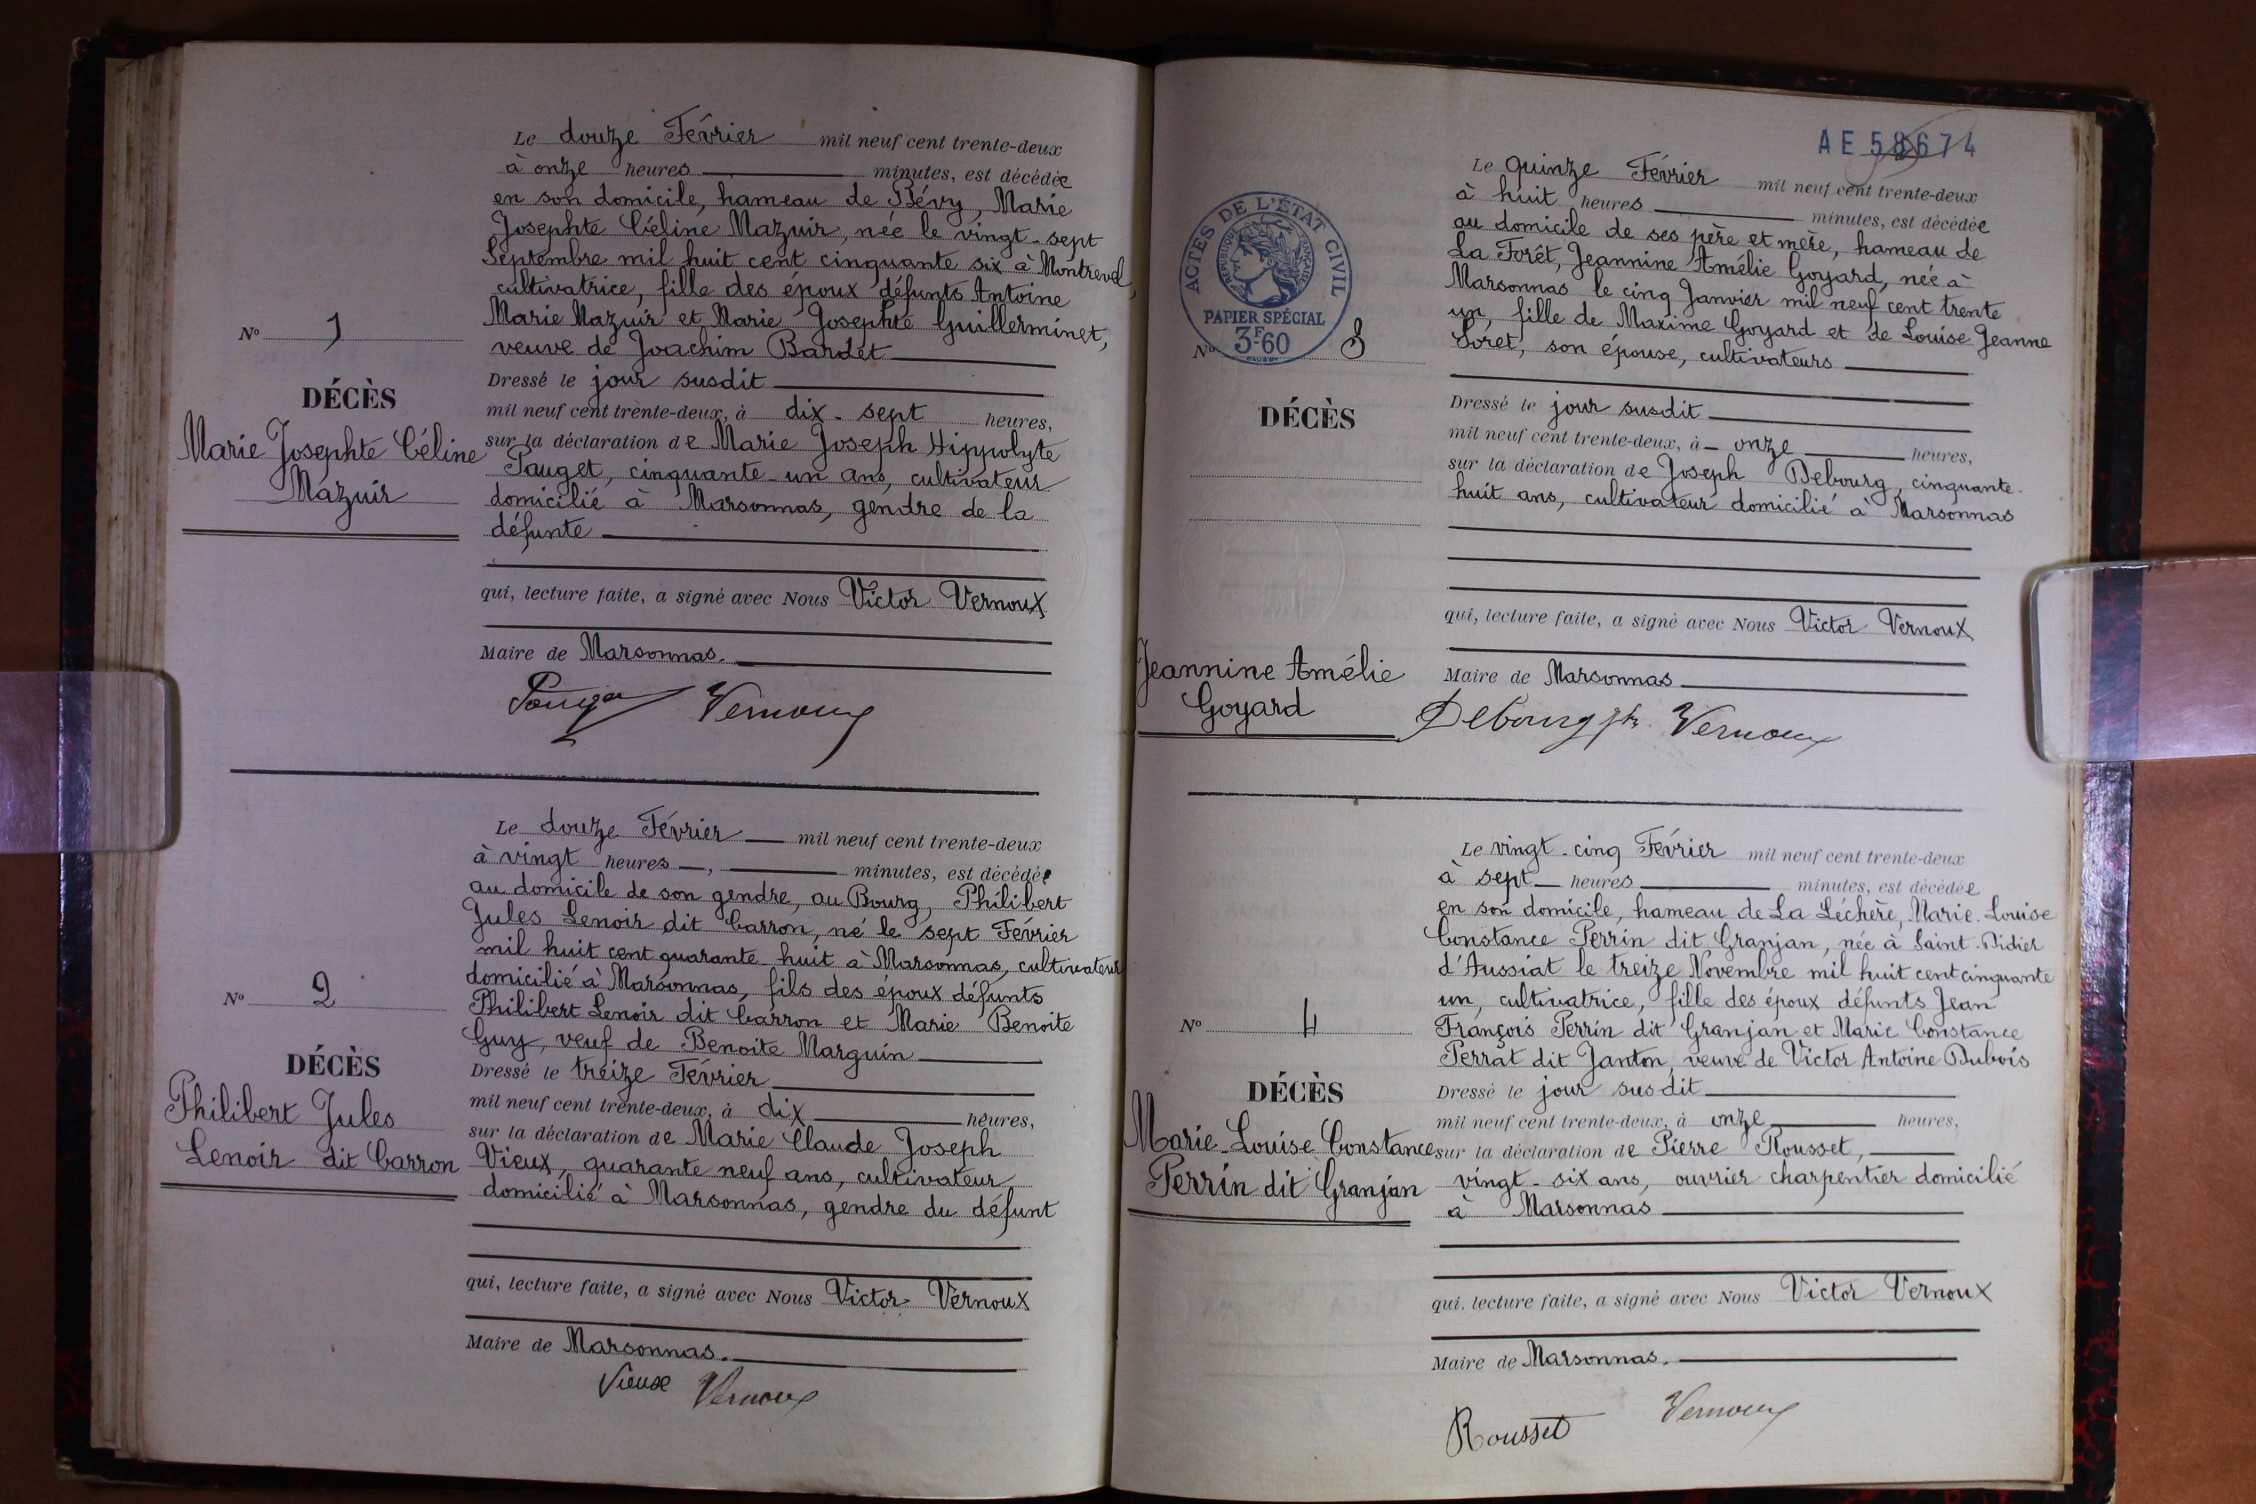 Le douze Février mil neuf cent trente-deux
à onze heures minutes, est décédée
en son domicile, hameau de Bévy, Marie
Josephte Céline Mazuir, née le vingt-sept
Septembre mil huit cent cinquante six à Montreval,
cultivatrice, fille des époux défunts Antoine
Marie Mazuir et Marie Josephte Guillerminet,
veuve de Joachim Bardet
Nº 1
DÉCÈS
Marie Josephte Céline
Mazuir
Dressé le jour susdit
mil neuf cent trente-deux, à dix-sept heures,
sur la déclaration de Marie Joseph Hippolyte
Pauget, cinquante-un ans, cultivateur
domicilié à Marsonnas, gendre de la
défunte
qui, lecture faite, a signé avec Nous Victor Vernoux
Maire de Marsonnas.
Vernoux
Le douze Février mil neuf cent trente-deux
à vingt heures, minutes, est décédée
au domicile de son gendre, au Bourg, Philibert
Jules Lenoir dit Carron, né le sept Février
mil huit cent quarante-huit à Marsonnas, cultivateur
domicilié à Marsonnas, fils des époux défunts
Philibert Lenoir dit Carron et Marie Benoite
Guy, veuf de Benoite Marguin
Nº 2
DÉCÈS
Philibert Jules
Lenoir dit Carron
Dressé le treize Février
mil neuf cent trente-deux, à dix heures,
sur la déclaration de Marie Claude Joseph
Vieux, quarante neuf ans, cultivateur
domicilié à Marsonnas, gendre du défunt
qui, lecture faite, a signé avec Nous Victor Vernoux
Maire de Marsonnas.
Vieux Vernoux
AE 58674
ACTES DE L'ÉTAT CIVIL
RÉPUBLIQUE FRANÇAISE
PAPIER SPÉCIAL
3F60
Le quinze Février mil neuf cent trente-deux
à huit heures minutes, est décédée
au domicile de ses père et mère, hameau de
La Forêt, Jeannine Amélie Goyard, née à
Marsonnas le cinq Janvier mil neuf cent trente
un, fille de Maxime Goyard et de Louise Jeanne
Soret, son épouse, cultivateurs
Nº 3
DÉCÈS
Jeannine Amélie
Goyard
Dressé le jour susdit
mil neuf cent trente-deux, à onze heures,
sur la déclaration de Joseph Debourg, cinquante-
huit ans, cultivateur domicilié à Marsonnas
qui, lecture faite, a signé avec Nous Victor Vernoux
Maire de Marsonnas
Debourg Jh Vernoux
Le vingt-cinq Février mil neuf cent trente-deux
à sept heures minutes, est décédée
en son domicile, hameau de La Léchère, Marie-Louise
Constance Perrin dit Granjan, née à Saint-Didier
d'Aussiat le treize Novembre mil huit cent cinquante
un, cultivatrice, fille des époux défunts Jean
François Perrin dit Granjan et Marie Constance
Perrat dit Janton, veuve de Victor Antoine Dubois
Nº 4
DÉCÈS
Marie-Louise Constance
Perrin dit Granjan
Dressé le jour susdit
mil neuf cent trente-deux, à onze heures,
sur la déclaration de Pierre Rousset,
vingt-six ans, ouvrier charpentier domicilié
à Marsonnas
qui, lecture faite, a signé avec Nous Victor Vernoux
Maire de Marsonnas.
Rousset Vernoux